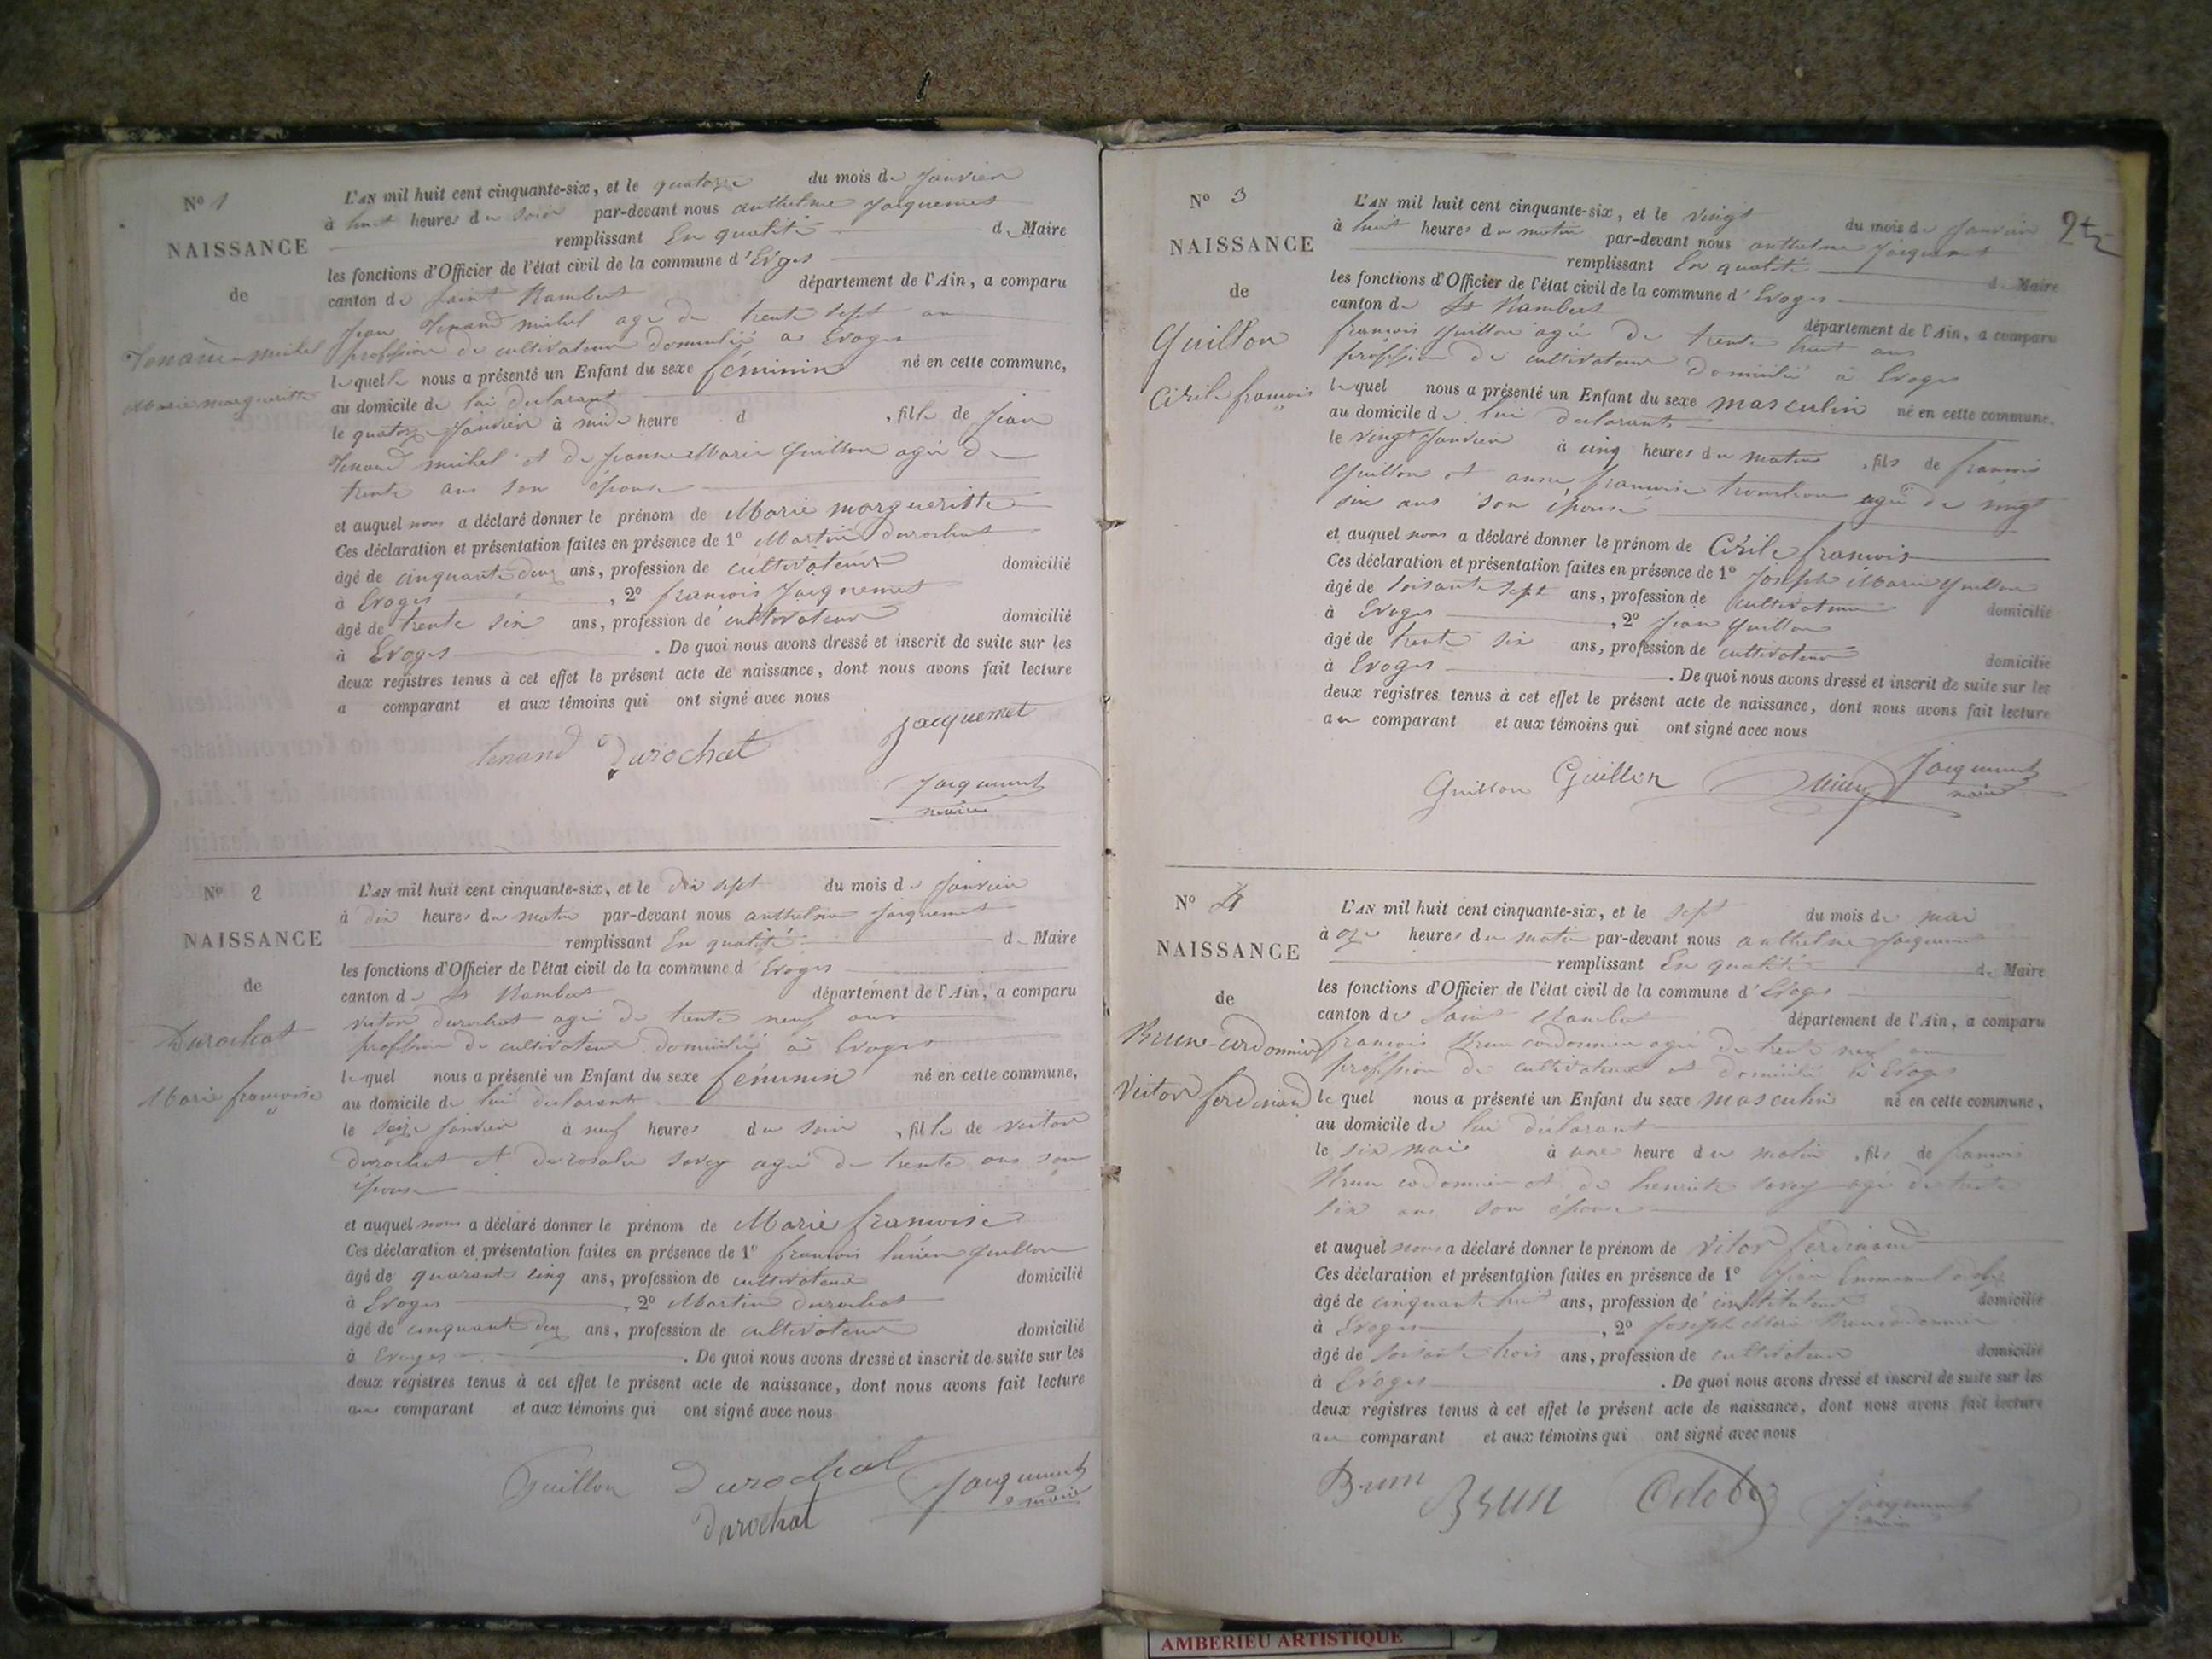 N° 1
NAISSANCE
de
Tenand-michel
Marie margueritte
L'AN mil huit cent cinquante-six, et le quatorze du mois de Janvier
à huit heures du soir par-devant nous anthelme Jacquemet
remplissant En qualité de Maire
les fonctions d'Officier de l'état civil de la commune d'Evoges
canton de Saint Rambert département de l'Ain, a comparu
Jean Tenand michel agé de trente sept an
profession de cultivateur domicilié a Evoges
lequel nous a présenté un Enfant du sexe féminin né en cette commune,
au domicile de lui declarant
le quatorze Janvier à midi heure d , fille de Jean
Tenand michel et de jeanne Marie Guillon agée de
trente ans son épouse
et auquel nous a déclaré donner le prénom de Marie margueritte
Ces déclaration et présentation faites en présence de 1° Martin Durochat
âgé de cinquante deux ans, profession de cultivateur domicilié
à Evoges , 2° francois Jacquemet
âgé de trente six ans, profession de cultivateur domicilié
à Evoges . De quoi nous avons dressé et inscrit de suite sur les
deux registres tenus à cet effet le présent acte de naissance, dont nous avons fait lecture
a comparant et aux témoins qui ont signé avec nous
tenand Durochat jacquemet
Jacquemet
maire
N° 2
NAISSANCE
de
Durochat
Marie francoise
L'AN mil huit cent cinquante-six, et le dix sept du mois de Janvier
à dix heures du matin par-devant nous anthelme Jacquemet
remplissant En qualité de Maire
les fonctions d'Officier de l'état civil de la commune d Evoges
canton de St Rambert département de l'Ain, a comparu
victor durochat agé de trente neuf ans
proffession de cultivateur domicilié à Evoges
lequel nous a présenté un Enfant du sexe féminin né en cette commune,
au domicile de lui declarant
le seize janvier à neuf heures du soir , fille de victor
durochat et de rosalie savey agée de trente ans son
épouse
et auquel nous a déclaré donner le prénom de Marie francoise
Ces déclaration et présentation faites en présence de 1° francois lucien guillon
âgé de quarante cinq ans, profession de cultivateur domicilié
à Evoges , 2° Martin Durochat
âgé de cinquante deux ans, profession de cultivateur domicilié
à Evoges . De quoi nous avons dressé et inscrit de suite sur les
deux registres tenus à cet effet le présent acte de naissance, dont nous avons fait lecture
au comparant et aux témoins qui ont signé avec nous
Guillon Durochat Jacquemet
maire
durochat
2
N° 3
NAISSANCE
de
Guillon
Cirile francois
L'AN mil huit cent cinquante-six, et le vingt du mois de Janvier
à huit heures du matin par-devant nous anthelme Jacquemet
remplissant En qualité de Maire
les fonctions d'Officier de l'état civil de la commune d'Evoges
canton de St Rambert département de l'Ain, a comparu
francois Guillon agé de trente huit ans
profession de cultivateur domicilié à Evoges
lequel nous a présenté un Enfant du sexe masculin né en cette commune.
au domicile de lui declarant
le vingt Janvier à cinq heures du matin , fils de francois
Guillon et anne francoise agée de vingt
six ans son épouse
et auquel nous a déclaré donner le prénom de Cirile francois
Ces déclaration et présentation faites en présence de 1° Joseph Marie Guillon
âgé de soisante sept ans, profession de cultivateur domicilié
à Evoges , 2° Jean Guillon
âgé de trente six ans, profession de cultivateur domicilié
à Evoges . De quoi nous avons dressé et inscrit de suite sur les
deux registres tenus à cet effet le présent acte de naissance, dont nous avons fait lecture
au comparant et aux témoins qui ont signé avec nous
Guillon Guillon Jacquemet
maire
N° 4
NAISSANCE
de
Brun-cordonnier
Victor ferdinand
L'AN mil huit cent cinquante-six, et le sept du mois de mai
à onze heures du matin par-devant nous anthelme Jacquemet
remplissant En qualité de Maire
les fonctions d'Officier de l'état civil de la commune d'Evoges
canton de Saint Rambert département de l'Ain, a comparu
francois Brun cordonnier agé de trente neuf an
profession de cultivateur et domicilié à Evoges
le quel nous a présenté un Enfant du sexe masculin né en cette commune,
au domicile de lui déclarant
le six mai à une heure du matin , fils de francois
Brun codonnier et de henriette savey agée de trente
six ans son épouse
et auquel nous a déclaré donner le prénom de Vitor ferdinand
Ces déclaration et présentation faites en présence de 1° Jean Emmanuel
âgé de cinquante huit ans, profession de instituteur domicilié
à Evoges , 2° Joseph Marie Bruncodonnier
âgé de soisante trois ans, profession de cultivateur domicilié
à Evoges . De quoi nous avons dressé et inscrit de suite sur les
deux registres tenus à cet effet le présent acte de naissance, dont nous avons fait lecture
au comparant et aux témoins qui ont signé avec nous
Brun Brun Jacquemet
maire
AMBERIEU ARTISTIQUE